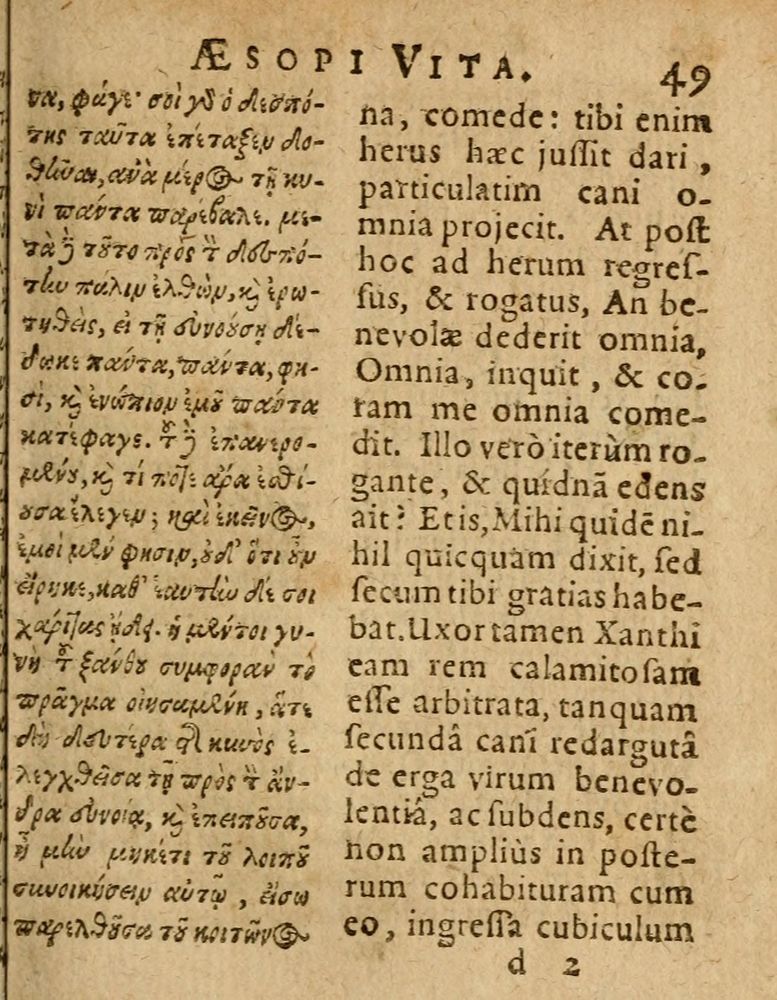 ÆSOPI VITA. 49
να, φάγε· σοὶ γὸ ὁ δεσπό-
της ταῦτα ἐπέταξεν δο-
θῆναι, ἀνὰ μέρος τῇ κυ-
νὶ πάντα παρέβαλε. με-
τὰ ἢ τοῦτο πρὸς τ δεσπό-
την πάλιν ἐλθὼν, κὶ ἐρω-
τηθεὶς, εἰ τῇ εὐνούσῃ δέ-
δωκε πάντα, πάντα, φη-
σὶ, κὶ ἐνώπιον ἐμοῦ πάντα
κατέφαγε. τοῦ δὲ ἐπανερο-
μένου, κὶ τί ποτε ἄρα ἐσθί-
ουσα ἔλεγεν; κακεῖνος,
ἐμοὶ μὲν φησὶν, οὐδ' ὁτιοῦν
εἴρηκε, καθ' ἑαυτὴν δέ σοι
χάριτας ᾔδει. ἡ μέντοι γυ-
νὴ τοῦ ξάνθου συμφορὰν τὸ
πρᾶγμα οἰησαμένη, ἅτε
δὴ δευτέρα τῆς κυνὸς ἐ-
λεγχθεῖσα τῇ πρὸς τ ἄν-
δρα εὐνοίᾳ, κὶ ἐπειποῦσα,
ἦ μὴν μηκέτι τοῦ λοιποῦ
συνοικήσειν αὐτῷ, εἴσω
παρελθοῦσα τοῦ κοιτῶνος
na, comede: tibi enim
herus hæc juſſit dari,
particulatim cani o-
mnia projecit. At poſt
hoc ad herum regreſ-
ſus, & rogatus, An be-
nevolæ dederit omnia,
Omnia, inquit, & co-
ram me omnia come-
dit. Illo verò iterùm ro-
gante, & quidnã edens
ait? Et is, Mihi quidē ni-
hil quicquam dixit, ſed
ſecum tibi gratias habe-
bat. Uxor tamen Xanthi
eam rem calamitoſam
eſſe arbitrata, tanquam
ſecundâ canī redargutâ
de erga virum benevo-
lentiâ, ac ſubdens, certè
non ampliùs in poſte-
rum cohabituram cum
eo, ingreſſa cubiculum
d 2